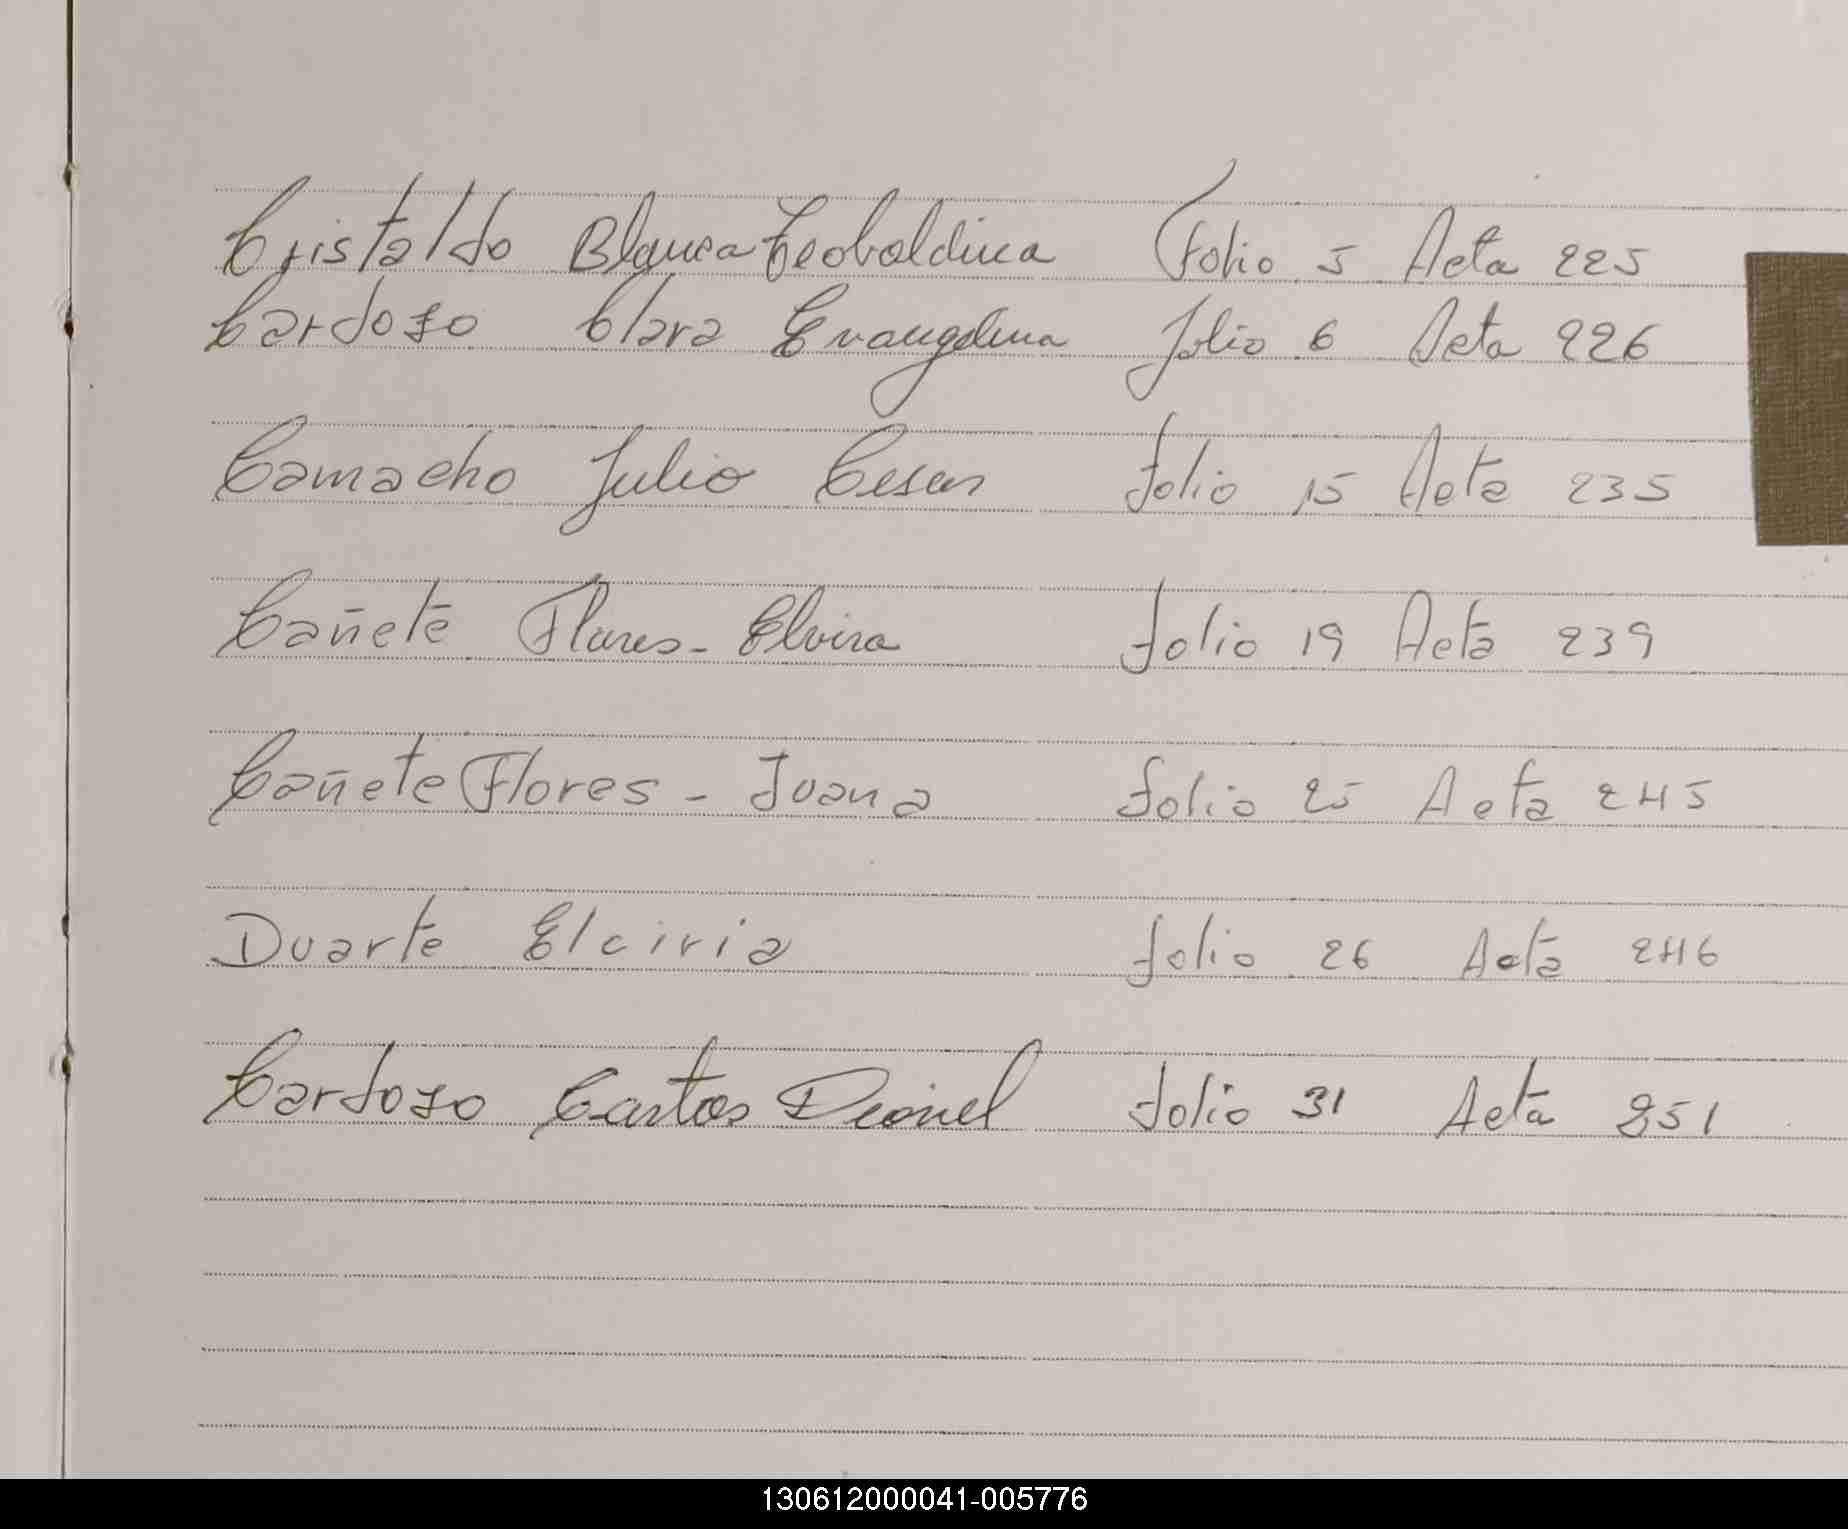 Cristaldo Blanca Teobaldina Folio 5 Acta 225
Cardozo Clara Evangelina folio 6 Acta 226
Camacho Julio Cesar folio 15 Acta 235
Cañete Flores - Elvira folio 19 Acta 239
Cañete Flores - Juana folio 25 Acta 245
Duarte Elciria folio 26 Acta 246
Cardozo Carlos folio 31 Acta 251
130612000041-005776